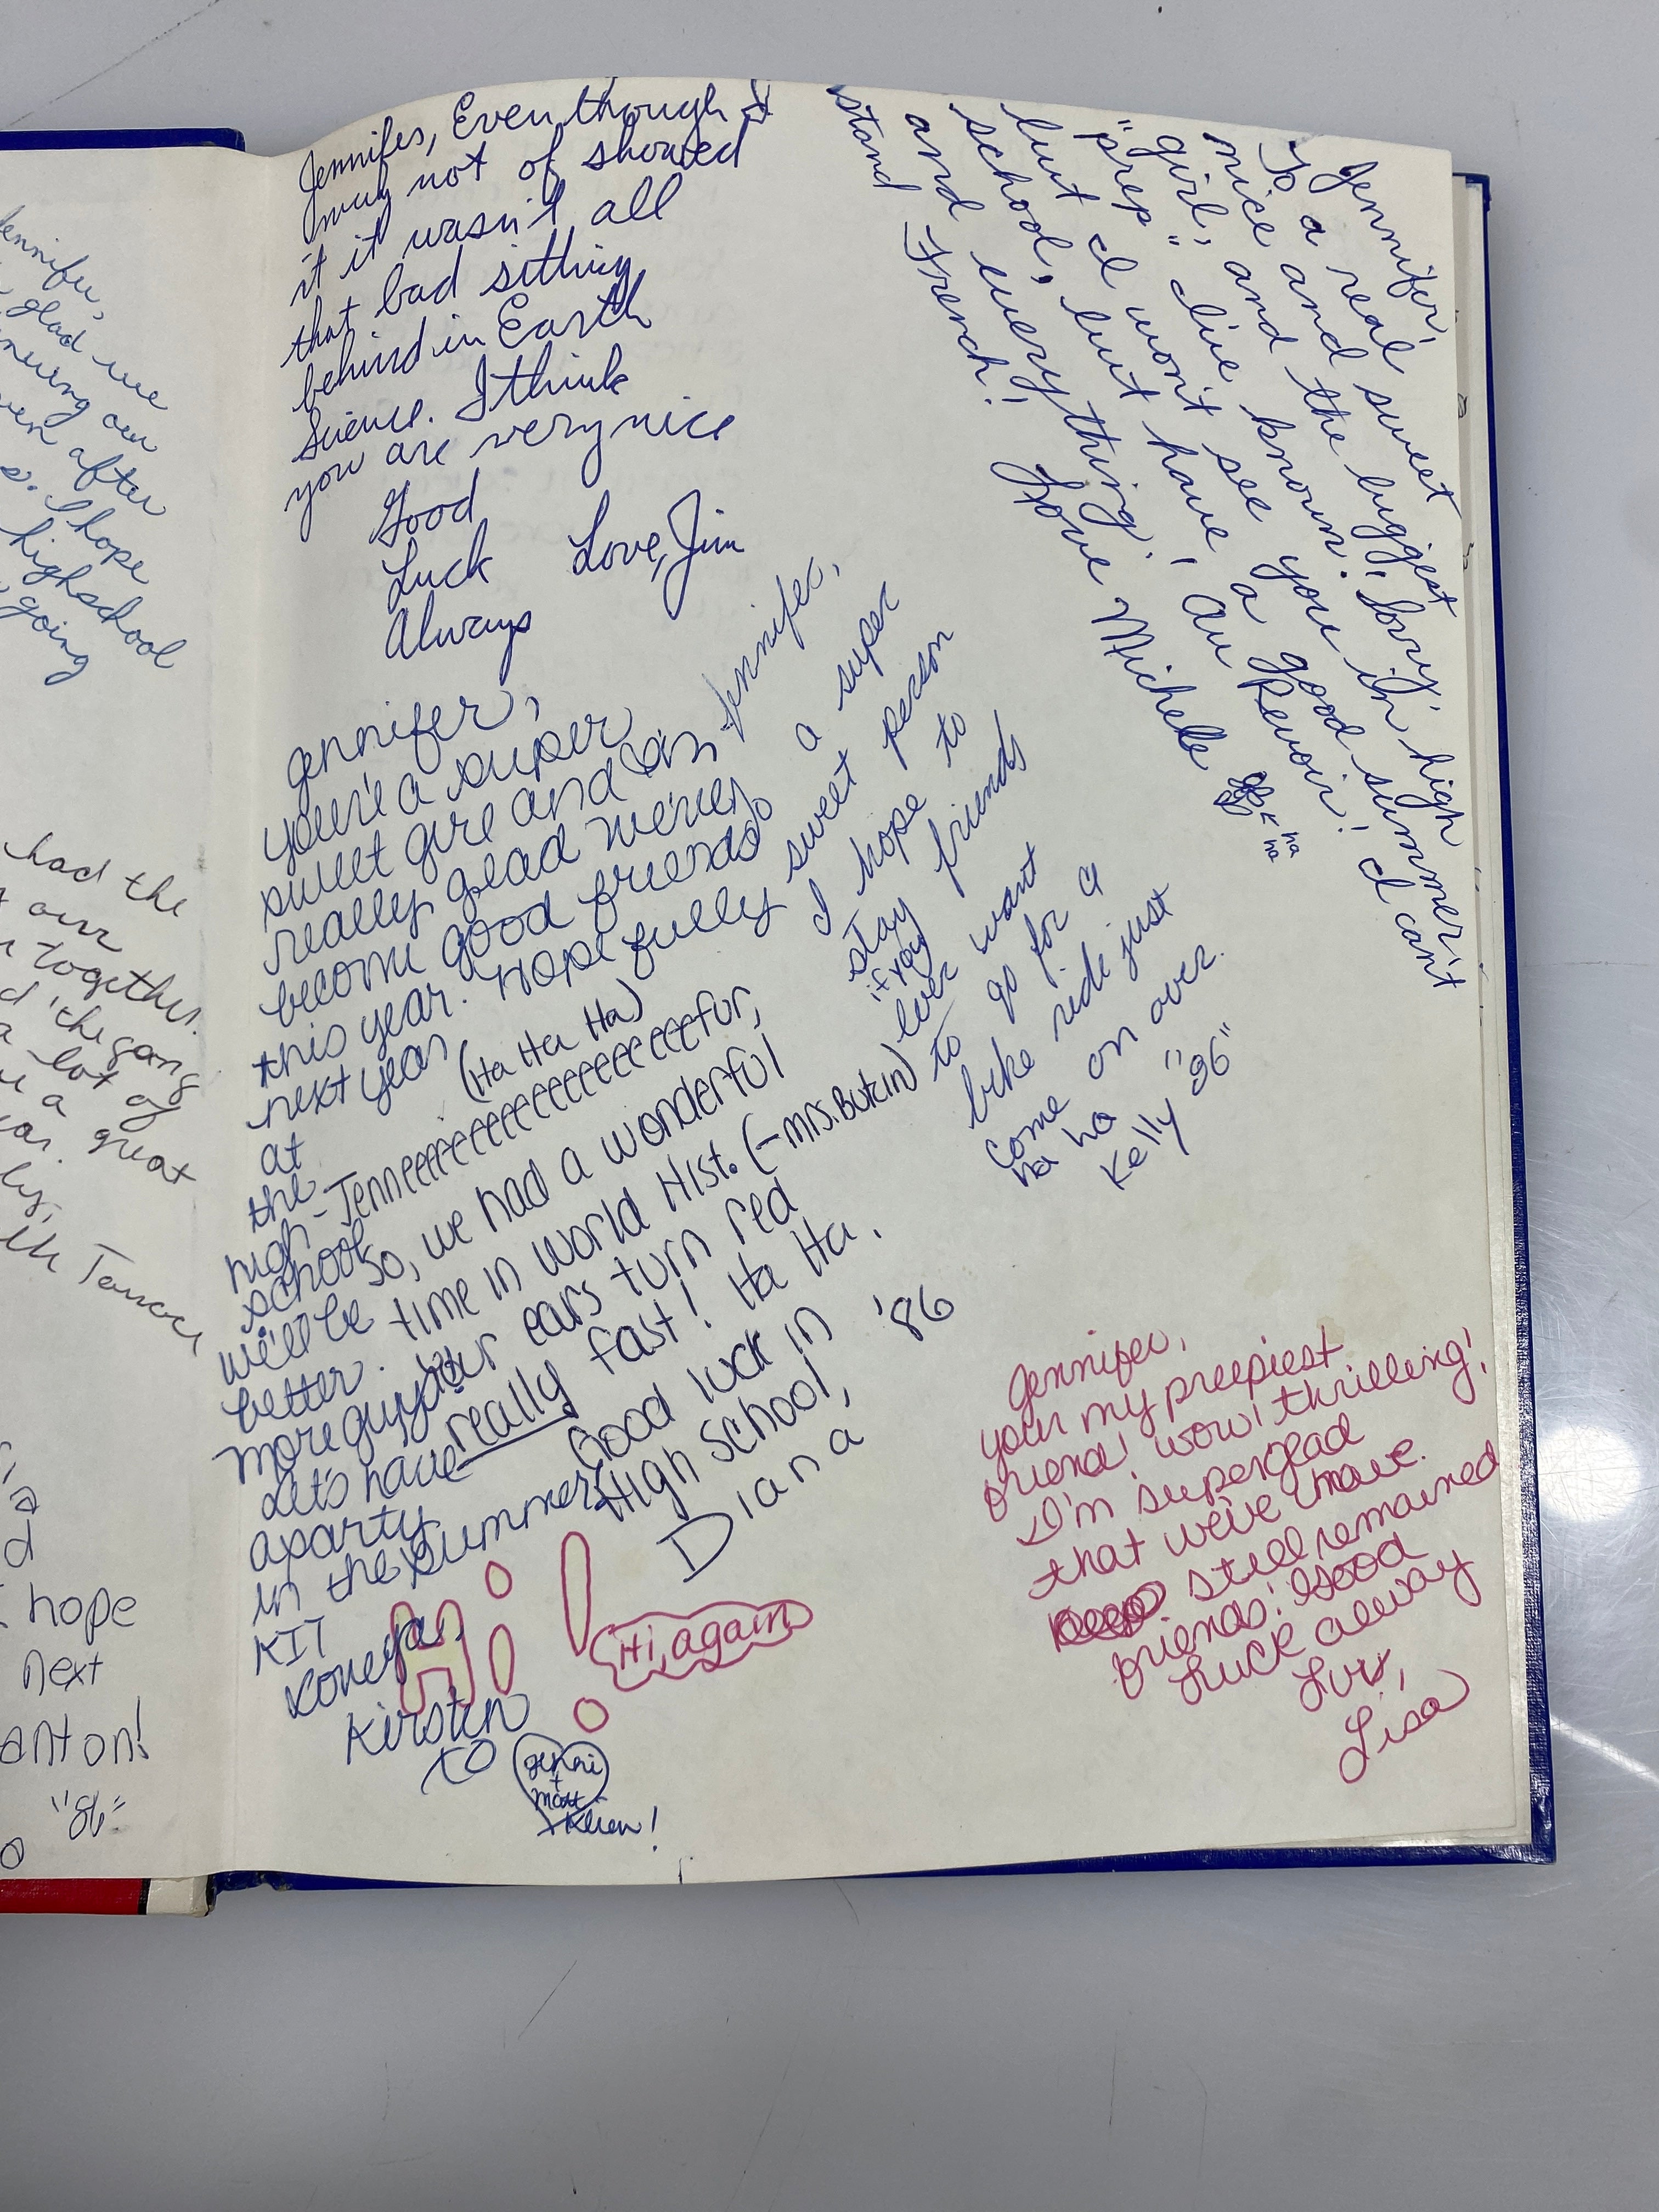 glad we
our
after
s. I hope
highschool
going
had the
our
together.
a lot of
a great
hope
next
anton!
"86"
Jennifer, Even though I
may not of showed
it it wasn't all
that bad sitting
behind in Earth
Science. I think
you are very nice
Good
Luck
Always
Love, Jim
Jennifer,
To a real sweet
nice and the biggest
"prep" I've known! Sorry,
but I won't see you in high
school, but have a good summer
and everything! Au Revoir! I can't
stand French!
Love Michele
ha
ha
Jennifer,
you're a super
sweet girl and I'm
really glad we've
become good friends
this year. Hopefully
next year
at
the
high
school
we'll be
better.
more guys
Let's have
a party
in the summer!
KIT
Love ya,
Kirsten
XO
Jenni
+
Matt
Klien!
Jennifer,
a super
sweet person
I hope to
stay friends
if you
ever want
to go for a
bike ride just
come on over.
ha ha
Kelly "86"
(Ha Ha Ha)
-Jenneeeeeeeeeeeeeeeeeeefur,
So, we had a wonderful
time in World Hist. (-Mrs. Butcin)
your ears turn red
really fast! Ha Ha.
Good luck in
High School,
Diana '86
Hi!
Hi, again
Jennifer,
your my preepiest
friend! wow! thrilling!
I'm superglad
that we've
still remained
friends! Good
Luck alway
Luv,
Lisa